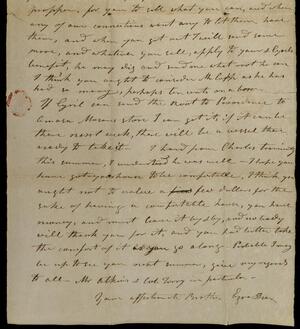 propper, for you to sell what you can, and when
any of our connections want any to let them have
them, and when you get out I will send some
more, and whatever you sell, apply to your & Cyrels
benefit, he may dig and send me what root he can
I think you ought to consider Mr Capp as he has
had so many, perhaps ten cents on a box.
If Cyril can send the root to Providence to
Amasa Masons store I can get it, if it can be
there next week, there will be a vessel there
ready to take it. I heard from Charles
this summer, I understand he was well I hope you
have got your house to be comfortable, I think you
ought not to value a few dollars for the
sake of having a comfortable house, you have
money, and must leave it by & by, and nobody
will thank you for it, and you had better take
the comfort of it as you go along. Probable I may
be up to see you next summer, give my regards
to all Mr Atkins & Col. Torry in particular.
Your affectionate Brother Ezra